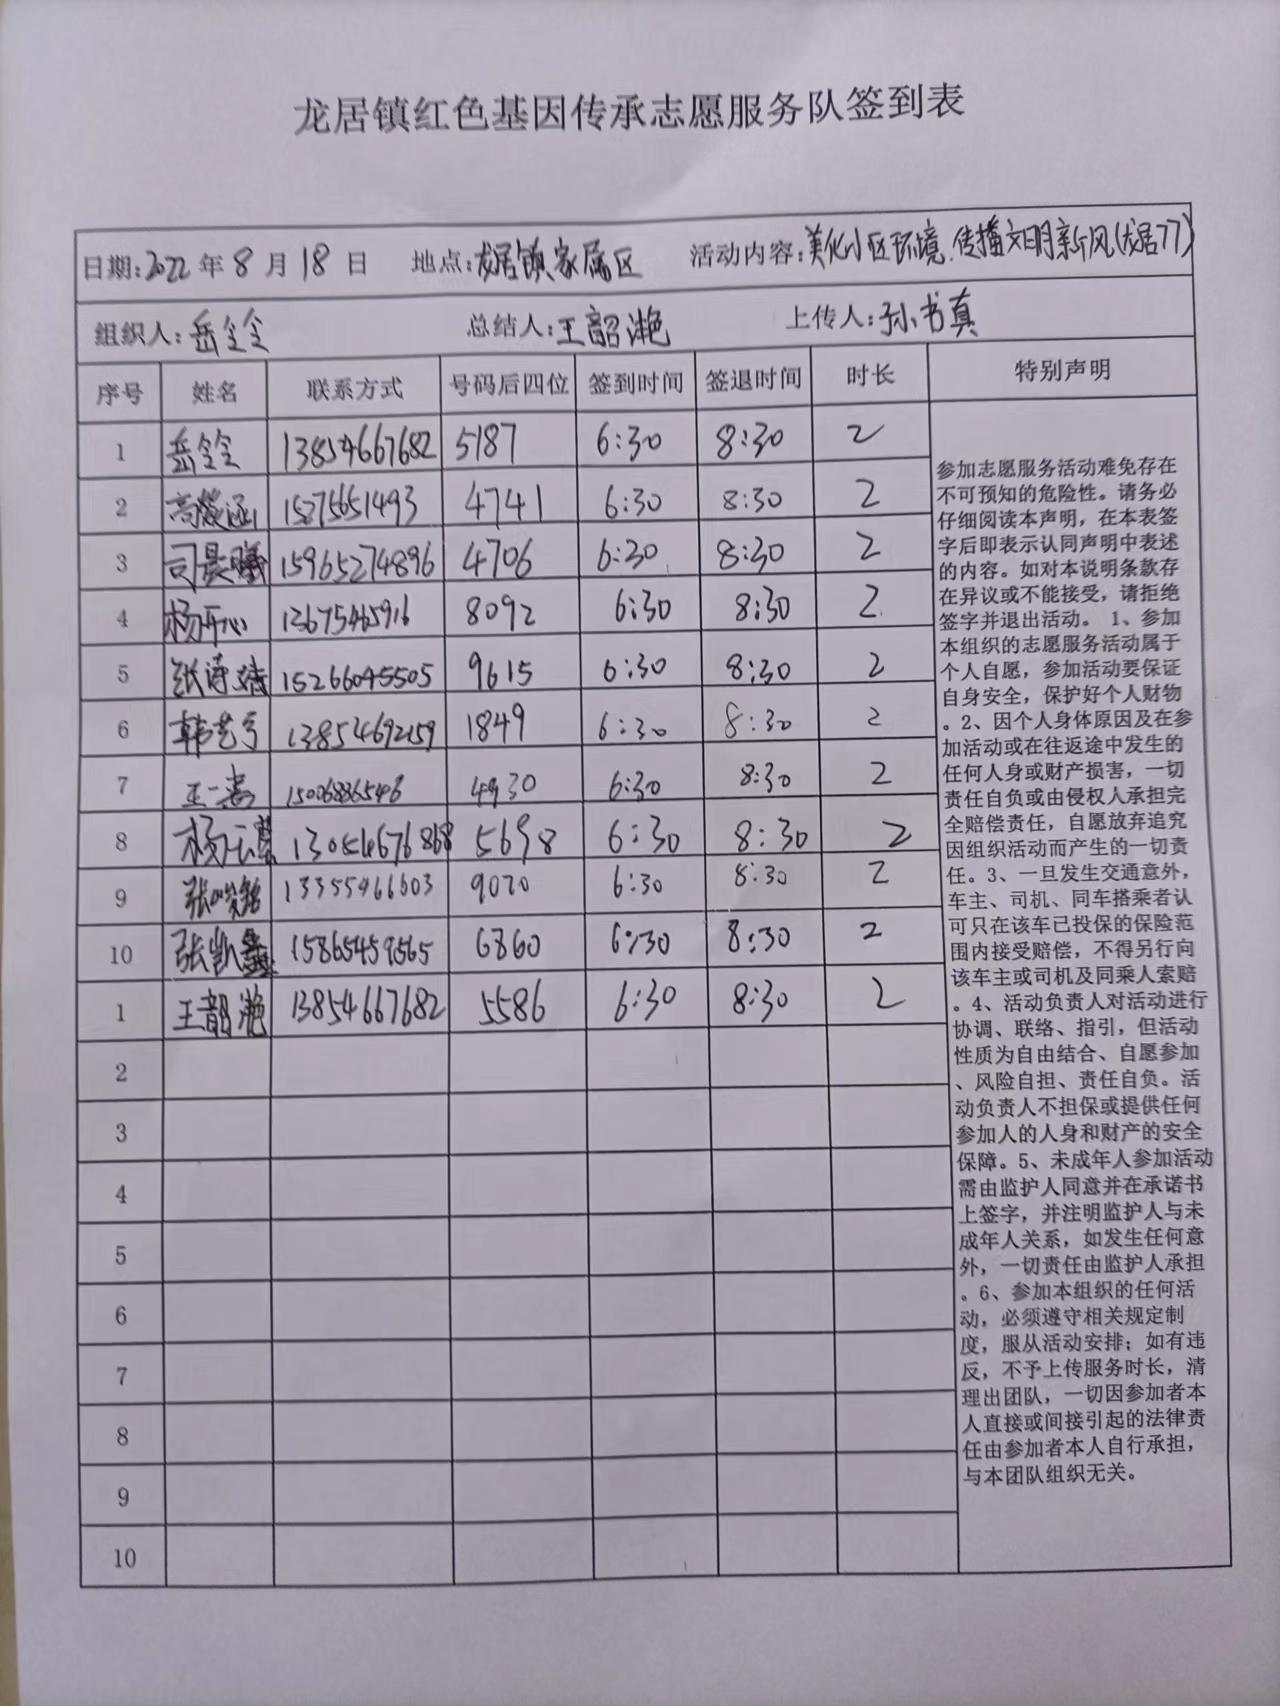 龙居镇红色基因传承志愿服务队签到表
日期:2022年8月18日 地点:龙居镇家属区 活动内容:美化小区环境、传播文明新风(龙居77)
组织人:岳全全 总结人:王韶滟 上传人:孙书真
序号 姓名 联系方式 号码后四位 签到时间 签退时间 时长 特别声明
1 岳全全 13854667682 5187 6:30 8:30 2
2 高 涵 15275651493 4741 6:30 8:30 2
3 司晨曦 15965274896 4706 6:30 8:30 2
4 杨开心 13675465916 8092 6:30 8:30 2
5 张诗婧 15266045505 9615 6:30 8:30 2
6 韩艺亭 13854692159 1849 6:30 8:30 2
7 王一 4930 6:30 8:30 2
8 杨云 13054676868 5698 6:30 8:30 2
9 张峻铭 13355466603 9020 6:30 8:30 2
10 张凯鑫 15865459565 6860 6:30 8:30 2
1 王韶滟 13854667682 5586 6:30 8:30 2
2
3
4
5
6
7
8
9
10
参加志愿服务活动难免存在
不可预知的危险性。请务必
仔细阅读本声明，在本表签
字后即表示认同声明中表述
的内容。如对本说明条款存
在异议或不能接受，请拒绝
签字并退出活动。 1、参加
本组织的志愿服务活动属于
个人自愿，参加活动要保证
自身安全，保护好个人财物
。2、因个人身体原因及在参
加活动或在往返途中发生的
任何人身或财产损害，一切
责任自负或由侵权人承担完
全赔偿责任，自愿放弃追究
因组织活动而产生的一切责
任。3、一旦发生交通意外，
车主、司机、同车搭乘者认
可只在该车已投保的保险范
围内接受赔偿，不得另行向
该车主或司机及同乘人索赔
。4、活动负责人对活动进行
协调、联络、指引，但活动
性质为自由结合、自愿参加
、风险自担、责任自负。活
动负责人不担保或提供任何
参加人的人身和财产的安全
保障。5、未成年人参加活动
需由监护人同意并在承诺书
上签字，并注明监护人与未
成年人关系，如发生任何意
外，一切责任由监护人承担
。6、参加本组织的任何活
动，必须遵守相关规定制
度，服从活动安排；如有违
反，不予上传服务时长，清
理出团队，一切因参加者本
人直接或间接引起的法律责
任由参加者本人自行承担，
与本团队组织无关。